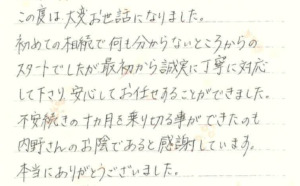 この度は大変お世話になりました。
初めての相続で何も分からないところからの
スタートでしたが最初から誠実に丁寧に対応
して下さり安心してお任せすることができました。
不安続きの十カ月を乗り切る事ができたのも
内野さんのお陰であると感謝しています。
本当にありがとうございました。